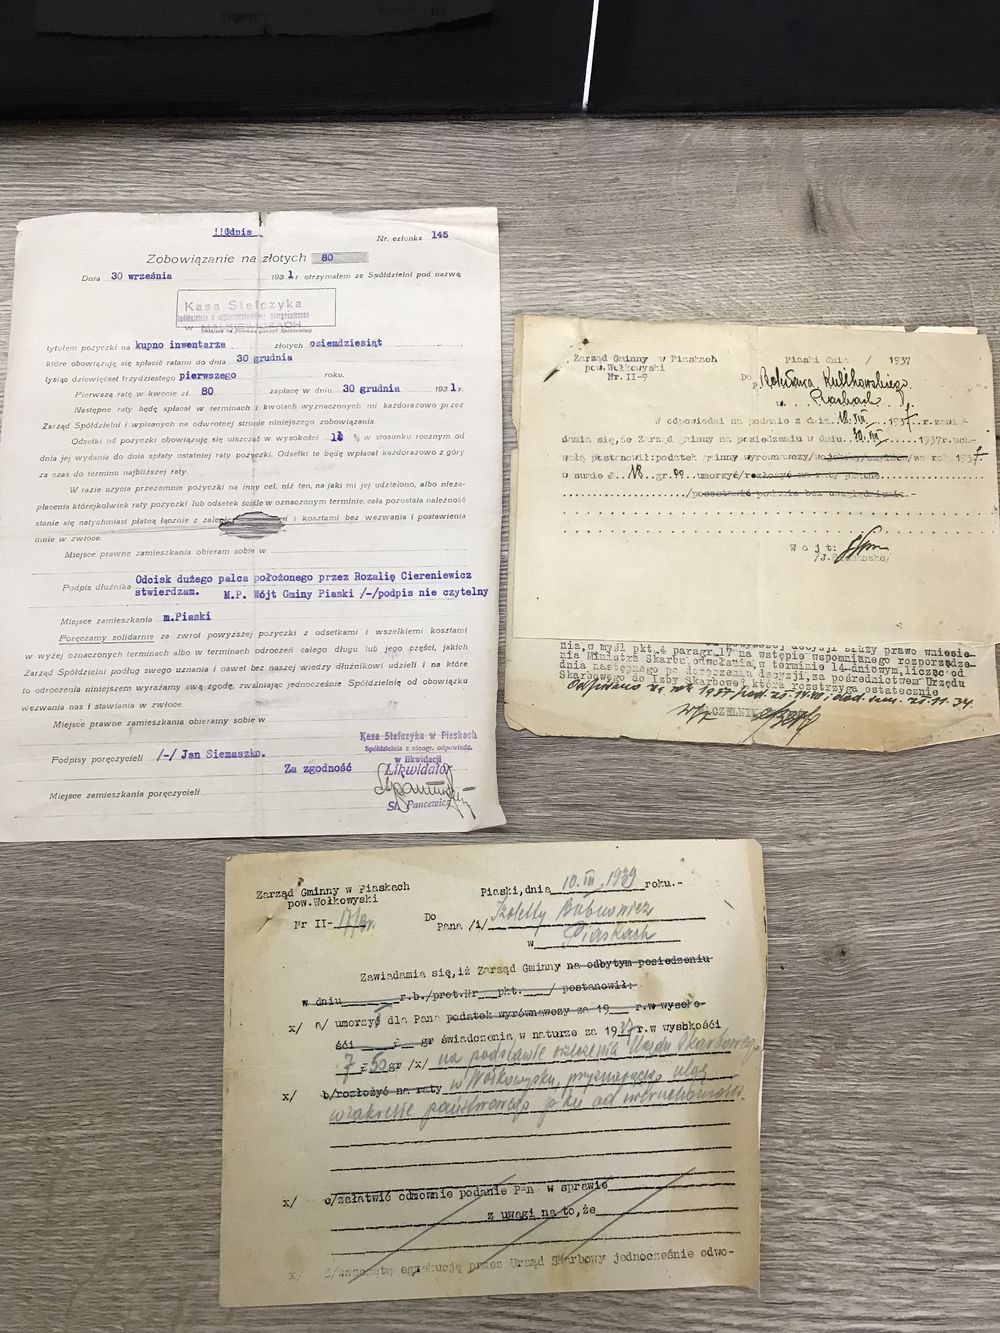 Odpis
Nr. członka 145
Zobowiązanie na złotych 80
Dnia 30 września 1931 r. otrzymałem ze Spółdzielni pod nazwą:
Kasa Stefczyka
Spółdzielnia z odpowiedzialnością nieograniczoną
w
tytułem pożyczki na kupno inwentarza złotych osiemdziesiąt
które obowiązuję się spłacić ratami do dnia 30 grudnia
tysiąc dziewięćset trzydziestego pierwszego roku.
Pierwszą ratę w kwocie zł. 80 zapłacę w dniu 30 grudnia 1931 r.
Następne raty będę spłacał w terminach i kwotach wyznaczonych mi każdorazowo przez
Zarząd Spółdzielni i wpisanych na odwrotnej stronie niniejszego zobowiązania.
Odsetki od pożyczki obowiązuję się uiszczać w wysokości % w stosunku rocznym od
dnia jej wydania do dnia spłaty ostatniej raty pożyczki. Odsetki te będę wpłacał każdorazowo z góry
za czas do terminu najbliższej raty.
W razie użycia przezemnie pożyczki na inny cel, niż ten, na jaki mi jej udzielono, albo nieza-
płacenia którejkolwiek raty pożyczki lub odsetek ściśle w oznaczonym terminie, cała pozostała należność
stanie się natychmiast płatną łącznie z i kosztami bez wezwania i postawienia
mnie w zwłoce.
Miejsce prawne zamieszkania obieram sobie w
Podpis dłużnika Odcisk dużego palca położonego przez Rozalię Ciereniewicz
stwierdzam. M.P. Wójt Gminy Piaski /-/podpis nie czytelny
Miejsce zamieszkania m.Piaski
Poręczamy solidarnie za zwrot powyższej pożyczki z odsetkami i wszelkiemi kosztami
w wyżej oznaczonych terminach albo w terminach odroczeń całego długu lub jego części, jakich
Zarząd Spółdzielni podług swego uznania i nawet bez naszej wiedzy dłużnikowi udzieli i na które
to odroczenia niniejszem wyrażamy swą zgodę, zwalniając jednocześnie Spółdzielnię od obowiązku
wezwania nas i stawiania w zwłoce.
Miejsce prawne zamieszkania obieramy sobie w
Kasa Stefczyka w Piaskach
Spółdzielnia z nieogr. odpowiedz.
w likwidacji
Podpisy poręczycieli /-/ Jan Siemaszko.
Za zgodność Likwidator
St. Pancewicz
Miejsce zamieszkania poręczycieli
Zarząd Gminny w Piaskach
pow. Wołkowyski
Nr. II-9
Piaski dnia / 1937
Do
P. Bolesława Kulikowskiego
w Piaskach
W odpowiedzi na podanie z dnia 18.XII 1937 r. zawia-
damia się, że Zarząd gminny na posiedzeniu w dniu 20.XII 1937r. uch-
walą postanowił: podatek gminny wyrównawczy/ /za rok 1937
w sumie 18 gr. 00 umorzyć/rozłożyć na raty płatne
/pozostawić podanie bez uwzględnienia.-
Wojt:
/J.Siemaszko/
służy prawo wniesie-
nia, w myśl pkt. 4 paragr. 17 na wstępie wspomnianego rozporządze-
nia Ministra Skarbu, odwołania, w terminie 14-dniowym, licząc od
dnia następnego po doręczeniu decyzji, za pośrednictwem Urzędu
Skarbowego do Izby Skarbowej, która rozstrzyga ostatecznie
Odpisano za rok 1937
NACZELNIK
Zarząd Gminny w Piaskach
pow. Wołkowyski
Nr II-
Piaski, dnia 10.III.1939 roku.-
Do
Pana /i/ Izoletty Bubnowicz
w Piaskach
Zawiadamia się, iż Zarząd Gminny na odbytym posiedzeniu
w dniu r.b./prot.Nr pkt. / postanowił:
x/ a/ umorzyć dla Pana podatek wyrównawczy za 19 r.w wysoko-
ści gr świadczenia w naturze za 1937 r.w wysokości
7 z 50 gr /x/ na podstawie orzeczenia Urzędu Skarbowego
x/ b/rozłożyć na raty w Wołkowysku, przyznającego ulgę
w zakresie państwowego p-ku od nieruchomości.
x/ c/załatwić odmownie podanie P-n w sprawie
z uwagi na to, że
x/ wszczętą egzekucję przez Urząd Skarbowy jednocześnie odwo-